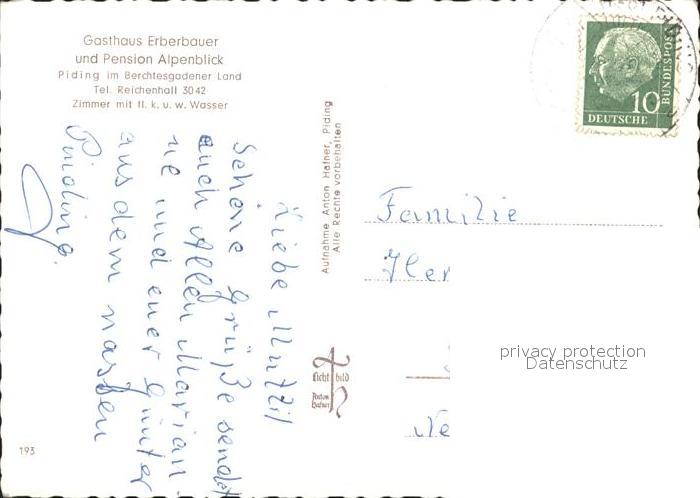 Gasthaus Erberbauer
und Pension Alpenblick
Piding im Berchtesgadener Land
Tel. Reichenhall 3042
Zimmer mit fl. k. u. w. Wasser
Liebe Mutzil
Schöne Grüße sendet
euch Allen Marian
ne und euer Günter
aus dem nassen
Piding.
Aufnahme Anton Hafner, Piding
Alle Rechte vorbehalten
10
DEUTSCHE
BUNDESPOST
Familie
Her
Ne
privacy protection
Datenschutz
Licht bild
Anton
Hafner
193